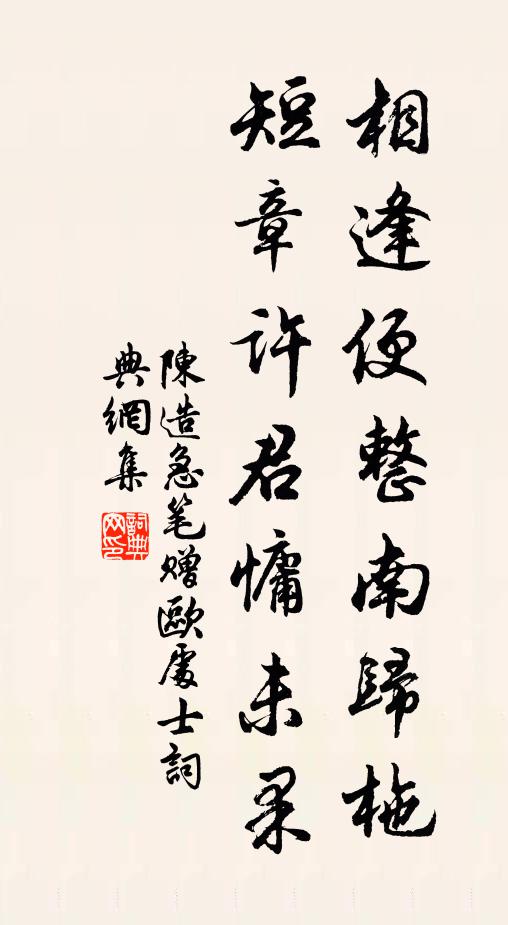 相逢便整南歸柂
短章許君慵未果
陳造急笔赠歐處士詞
典網集
詞典網印